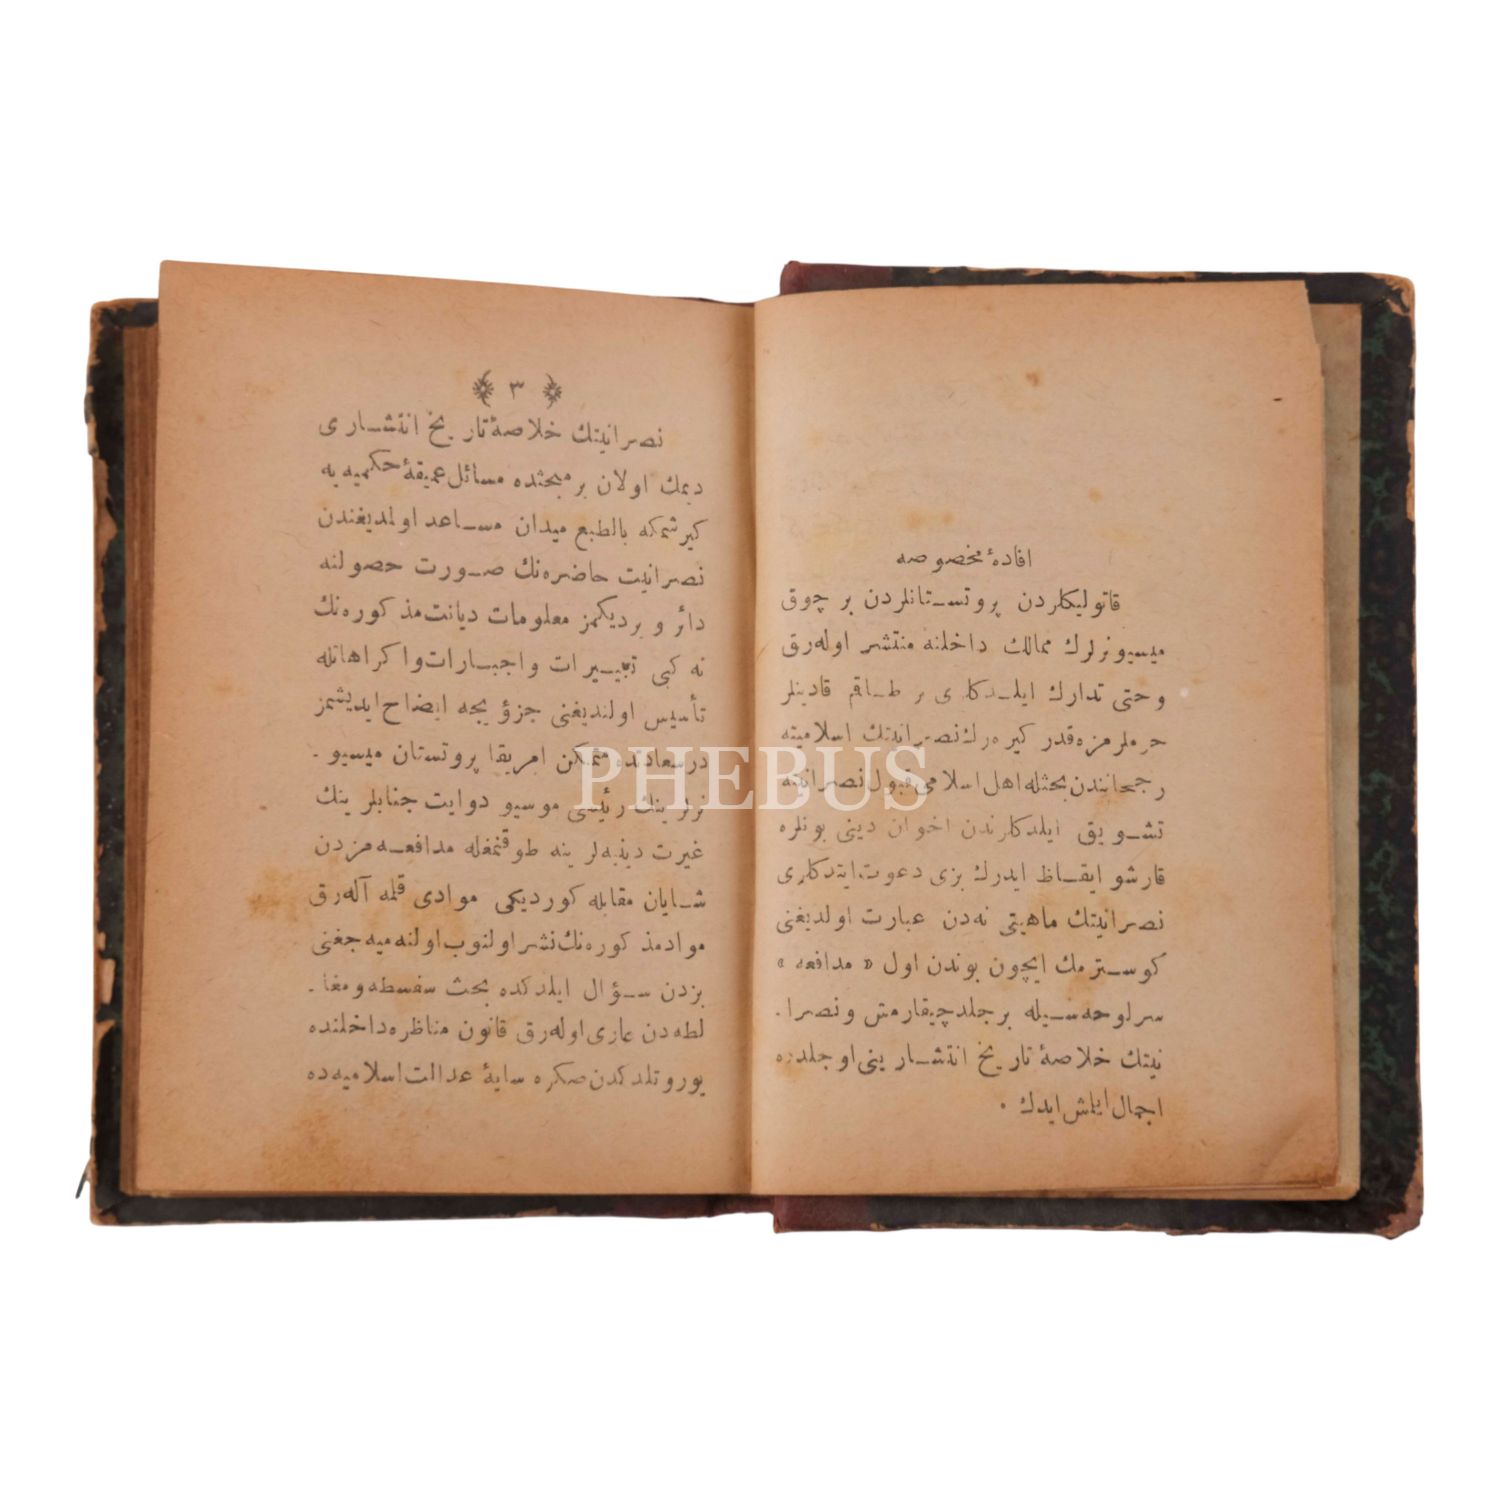 افادۀ مخصوصه
قاتولیکلردن پروتستانلردن بر چوق
میسیونرلرك ممالك داخلنه منتشر اوله‌رق
وحتی تدارك ایلدکلری بر طاقم قادینلر
حرملرمزه قدر کیره‌رك نصرانیتك اسلامیته
رجحانندن بحثله اهل اسلامی قبول نصرانیته
تشویق ایلدکلرندن اخوان دینی بونلره
قارشو ایقاظ ایدرك بزی دعوت ایتدکلری
نصرانیتك ماهیتی نه‌دن عبارت اولدیغنی
کوسترمك ایچون بوندن اول « مدافعه »
سرلوحه‌سیله بر جلد چیقارمش ونصرا-
نیتك خلاصۀ تاریخ انتشارینی او جلدده
اجمال ایلمش ایدك .
٣
نصرانیتك خلاصۀ تاریخ انتشاری
دیمك اولان بر مبحثده مسائل عمیقۀ حکمیه یه
کیرشمکه بالطبع میدان مساعد اولمدیغندن
نصرانیت حاضره‌نك صورت حصولنه
دائر ویردیکمز معلومات دیانت مذکوره‌نك
نه کبی تغییرات واجبارات واکراهاتله
تأسیس اولندیغنی جزؤیجه ایضاح ایدیشمز
درسعادتده متمکن امریقا پروتستان میسیو-
نرلرینك رئیسی موسیو دوایت جنابلرینك
غیرت دینیه‌لرینه طوقنمغله مدافعه‌مزدن
شایان مقابله کوردیکی موادی قلمه آله‌رق
مواد مذکوره‌نك نشر اولنوب اولنه‌میه‌جغنی
بزدن سؤال ایلدکده بحث سفسطه ومغا-
لطه‌دن عاری اوله‌رق قانون مناظره داخلنده
یوروتلدکدن صکره سایۀ عدالت اسلامیه‌ده
PHEBUS